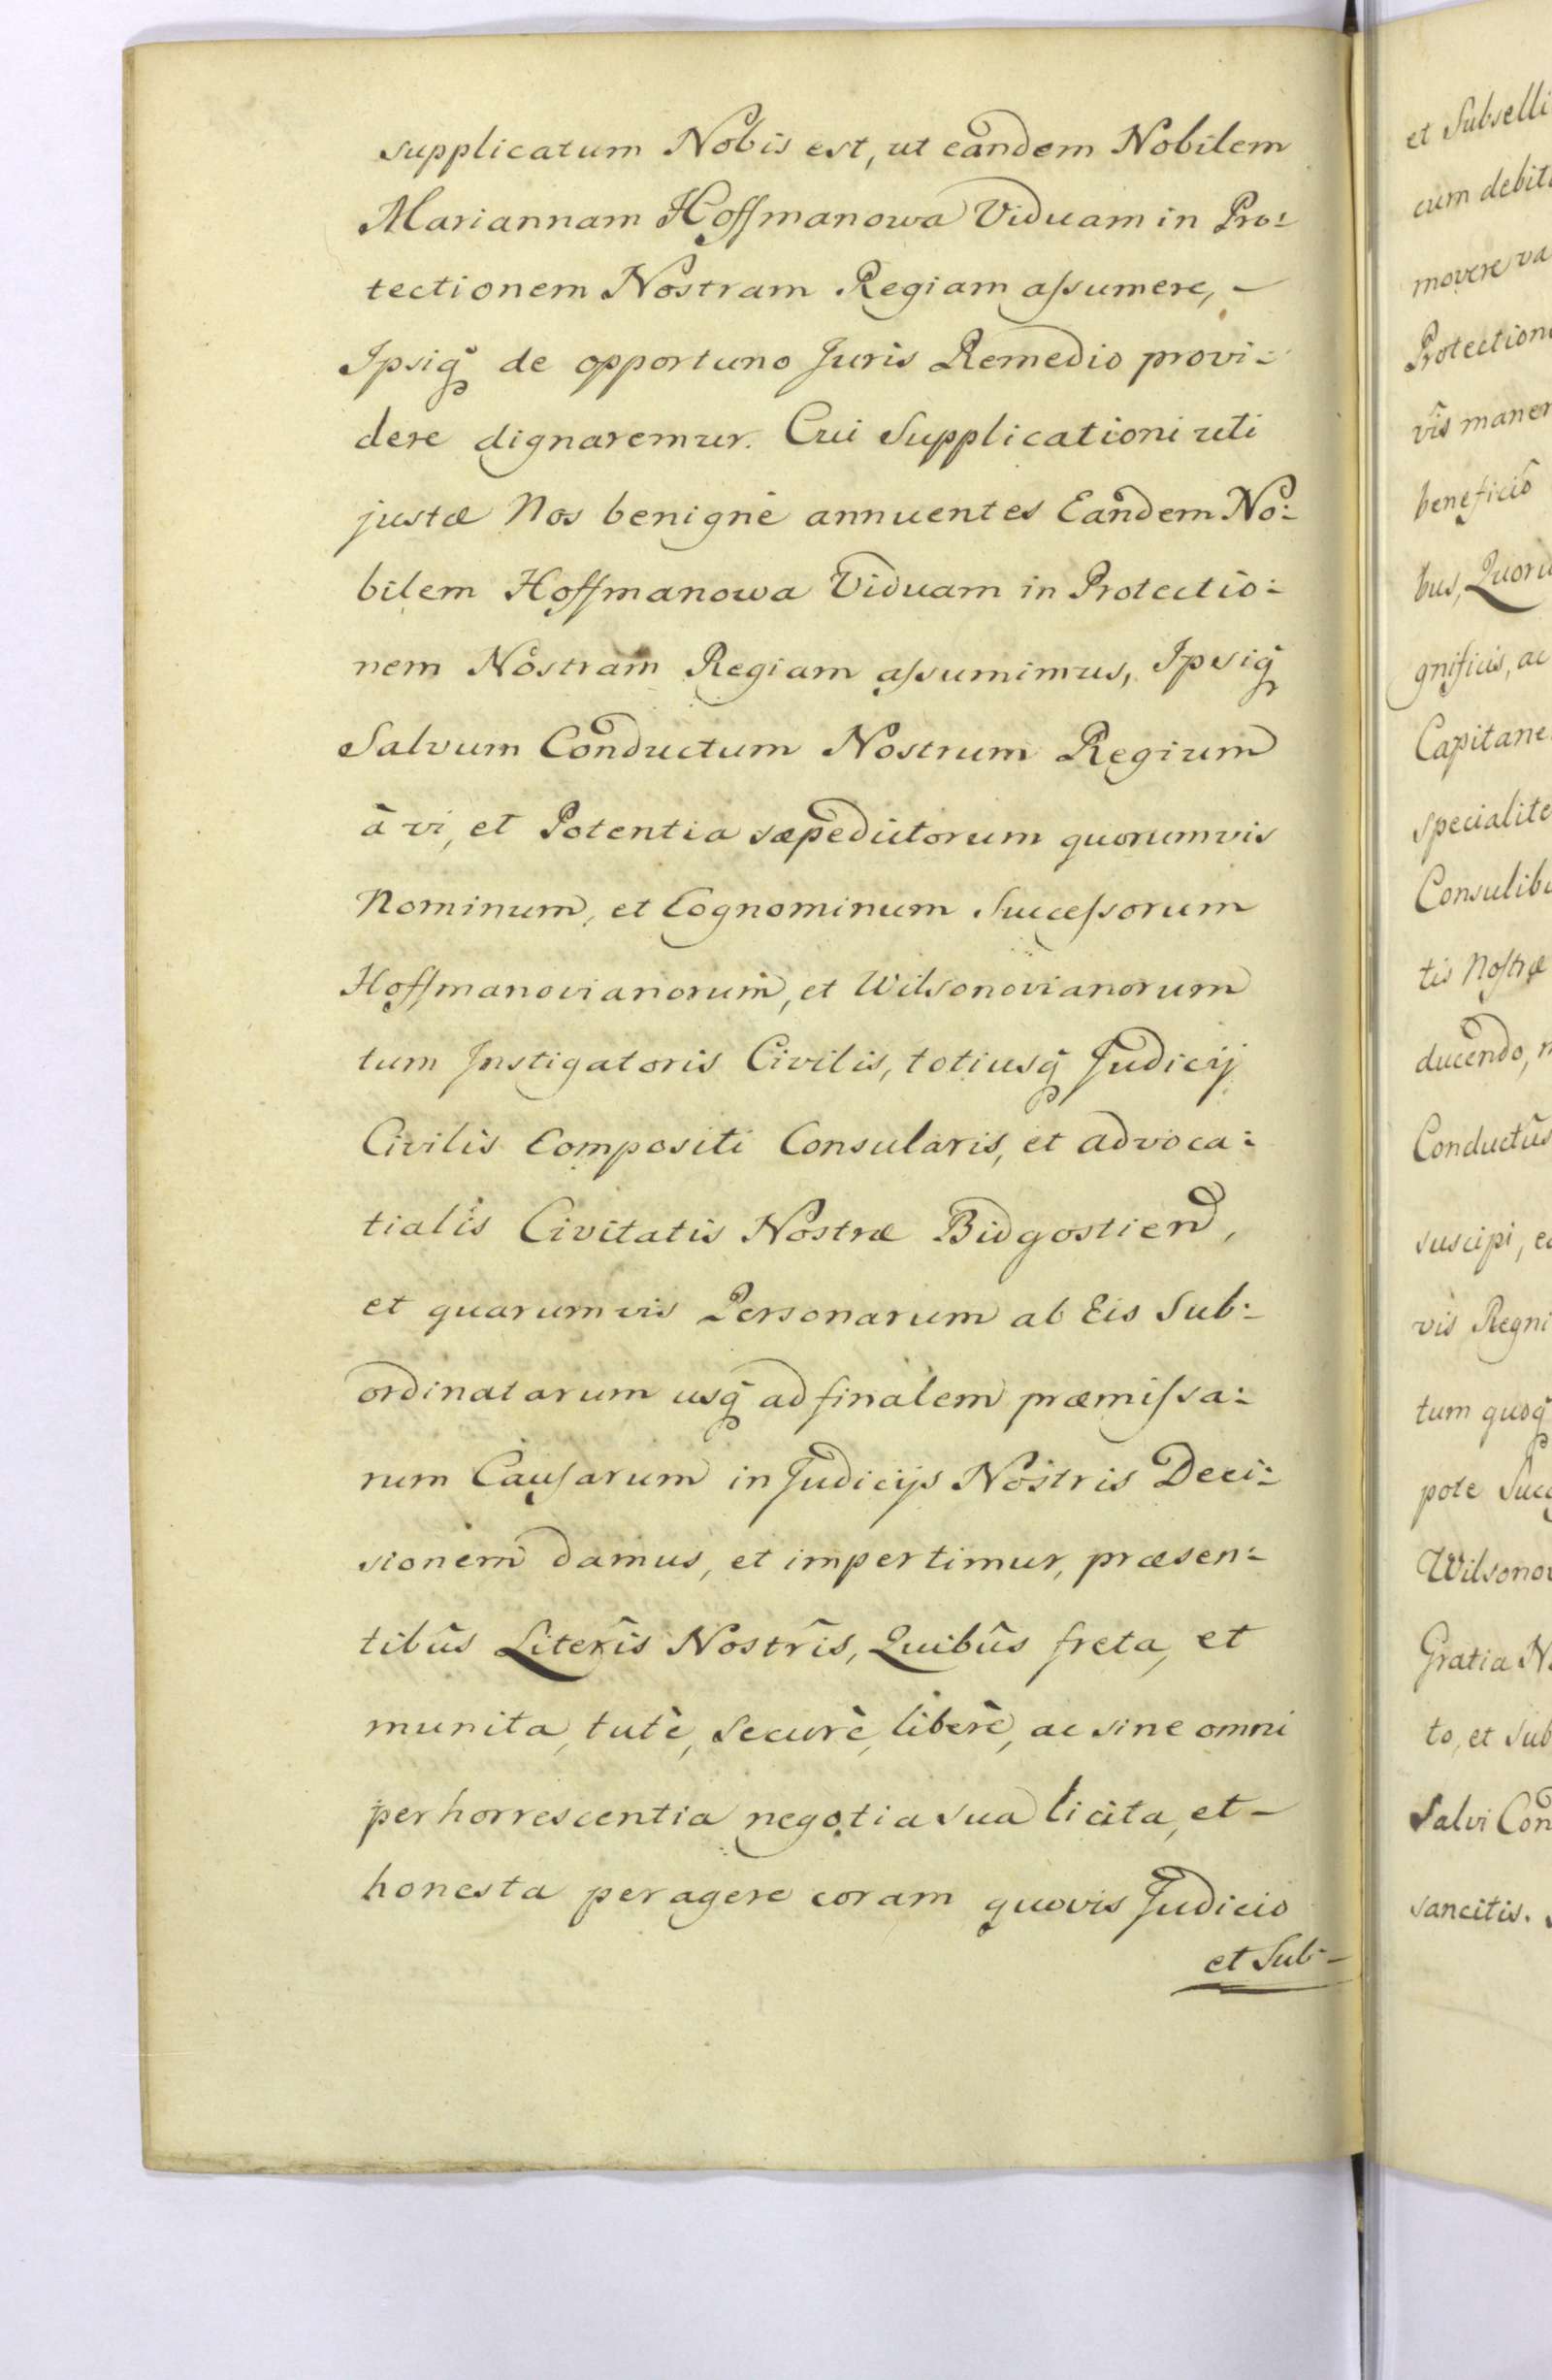 supplicatum Nobis est, ut eandem Nobilem
Mariannam Hoffmanowa Viduam in Pro:
tectionem Nostram Regiam assumere, -
Ipsiq̃ de opportuno Juris Remedio provi:
dere dignaremur. Cui Supplicationi uti
justæ Nos benignè annuentes Eandem No:
bilem Hoffmanowa Viduam in Protectio:
nem Nostram Regiam assumimus, Ipsiq̃
Salvum Conductum Nostrum Regium
à vi, et Potentia sæpedictorum quorumvis
Nominum, et Cognominum Successorum
Hoffmanovianorum, et Wilsonovianorum
tum Instigatoris Civilis, totiusq̃ Judicij
Civilis Compositi Consularis, et advoca:
tialis Civitatis Nostræ Bidgostien̄,
et quarumvis Personarum ab Eis Sub:
ordinatarum usq̃ ad finalem præmissa:
rum Causarum in Judicijs Nostris Deci:
sionem damus, et impertimur, præsen:
tibûs Literîs Nostrîs, Quibûs freta, et
munita, tutè, Securè, liberè, ac sine omni
perhorrescentia negotia sua licita, et -
honesta peragere coram quovis Judicio
et Sub-
et Subselli
cum debit
movere va
Protection
vîs maner
beneficiô
bus, Quoru
gnificis, ac
Capitane
specialite
Consulibu
tis Nostræ
ducendo,
Conductûs
suscipi,
vis Regni
tum quoq̃
pote Succ
Wilsonov
Gratia N
to, et Sub
Salvi Con
sancitis.